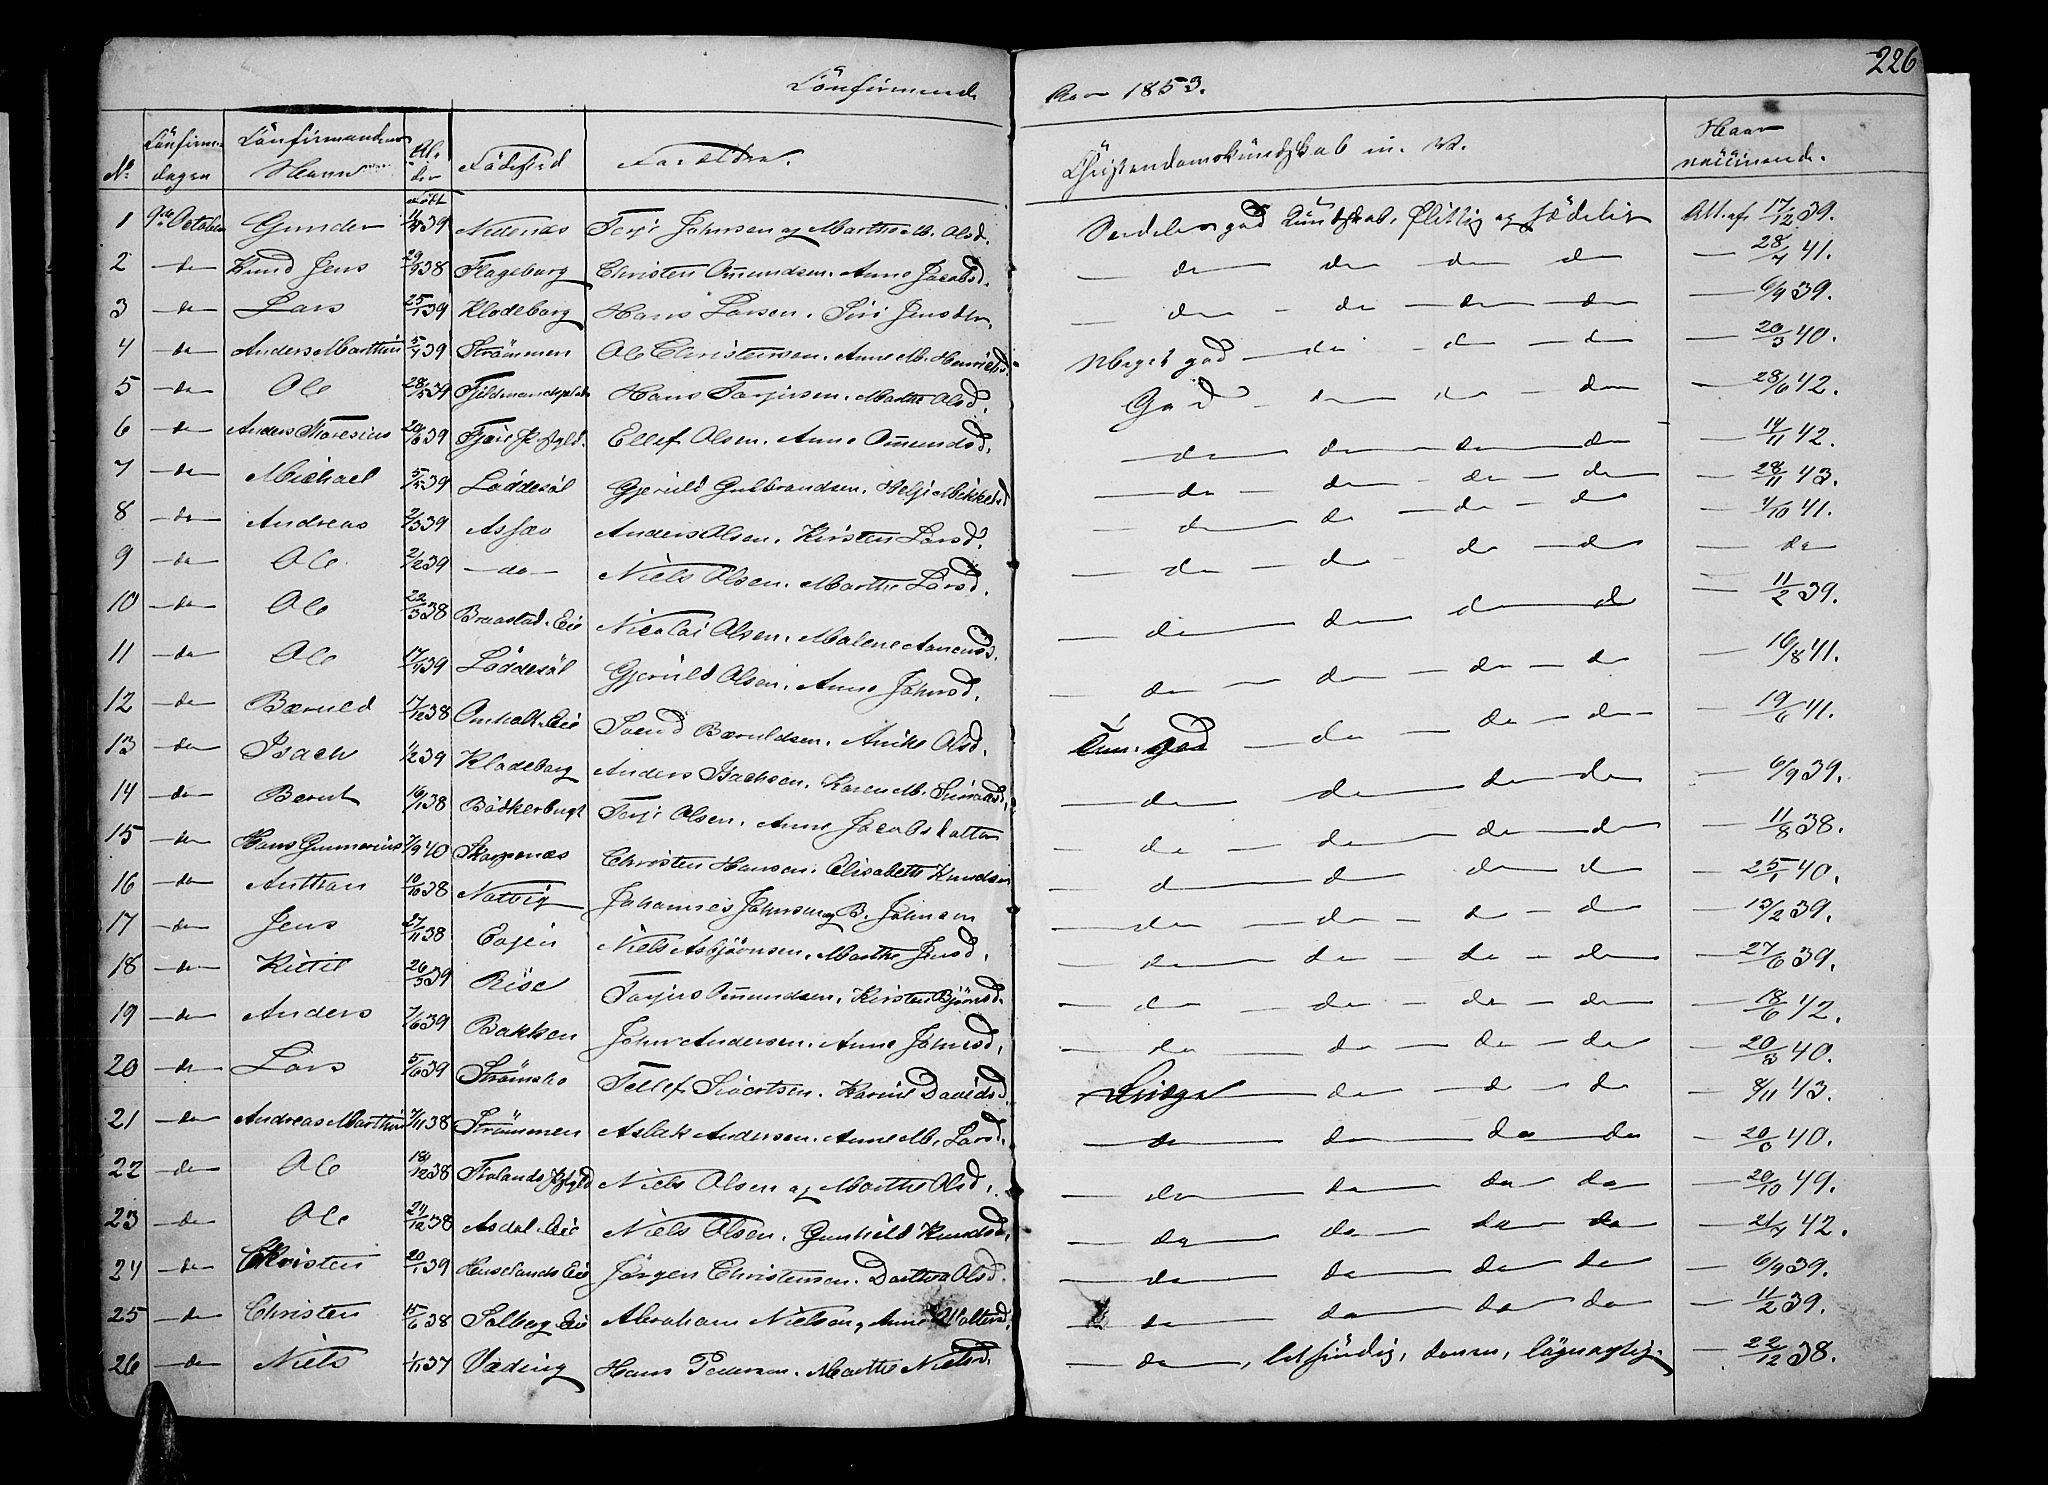 226
Confirmerede Aar 1853.
No Confirma- dagen Confirmandens Navn Alder Födested Forældre. Christendomskundskab m. v. Naar vaccineret.
født
1 9de October Gunder 39 Nedenæs Terje Johnsen og Marthe M. Olsd. Særdeles god Kundskab, flittig og sædelig Att. af 17/12 39.
2 — do Knud Jens 29/9 38 Flageborg Christen Omundsen. Anne Jacobsd. — do do do do — 28/7 41.
3 — do Lars 25/1 39 Klodeborg Hans Larsen. Siri Jensdtr. — do — do — do — do — 6/9 39.
4 — do Anders Marthin 5/4 39 Strömmen Ole Christensen. Anne M. Henriksd. Meget god — do — do — do — 20/3 40.
5 — do Ole 28/5 39 Hans Terjersen. Marthe Olsd. God — do — do — do — 28/6 42.
6 — do Anders Thoresius 39 Fjære Ellef Olsen. Anne Omundsd. — do do do do — 14/11 42.
7 — do Michael 39 Löddesöl Gjeruld Gulbrandsen. Helje Mikkelsd — do — do — do — do — 28/11 43.
8 — do Andreas 2/3 39 Assæv Anders Olsen. Kirsten Larsd. — do do — do — do — 4/10 41.
9 — do Ole 2/2 39 — do — Niels Olsen. Marthe Larsd. — do — do — do — do — do
10 — do Ole 22/3 38 Braastad. Eie Nicolai Olsen. Malene Aanensd. — do do do do — 11/2 39.
11 — do Ole 17/4 39 Löddesöl Gjeruld Olsen. Anne Johnsd. — do — do — do — do — 16/8 41.
12 — do Bæruld 17/12 38 Omholt. Eie Svend Bæruldsen. Anike Olsd. Tem. god — do — do — do — 19/6 41.
13 — do Isach 1/2 39 Klodeborg Anders Isachsen. Karen M. — do do do do — 6/9 39.
14 — do Bernt 16/1 38 Bödkerbugt Terje Olsen. Anne Jacobsdatter — do — do do do — 11/8 38.
15 — do Hans Gunnarius 7/9 40 Skarpenæs Christen Hansen. Elisabeth Knudsen — do do do do — 25/1 40.
16 — do Anthon 10/10 38 Natvig Johannes Johnsen og B. Johnsen — do — do — do — do — 13/2 39.
17 — do Jens 27/11 38 Niels Asbjörnsen. Marthe Jensd. — do — do — do — do — 27/6 39.
18 — do Kittil 26/5 39 Rise Terjers Omundsen. Kirsten Björnsd. — do — do — do — do — 18/6 42.
19 — do Anders 7/6 39 Bakken John Andersen. Anne Johnsd. — do — do — do — do — 20/3 40.
20 — do Lars 5/6 39 Strömsbo Tellef Sivertsen. Karine Davidsd. do — do — do — 8/11 43.
21 — do Andreas Marthin 7/11 38 Strömmen Aslak Andersen. Anne M. Larsd. — do do do do — 20/3 40.
22 — do Ole 18/12 38 Niels Olsen og Marthe Olsd. — do do do do — 20/10 49.
23 — do Ole 24/12 38 Asdal. Eie Niels Olsen. Gunhild Knudsd. — do do do do — 21/7 42.
24 — do Christen 20/1 39 Huselands Eie Jörgen Christensen. Dorthea Olsd. — do do do do — 6/9 39.
25 — do Christen 15/6 38 Solberg Eie Abraham Nielsen, Anne — do do do do — 11/2 39.
26 — do Niels 1/11 37 Væding Hans Pedersen. Marthe Nielsd. — do, letsindig, doven, lögnagtig. — 22/12 38.